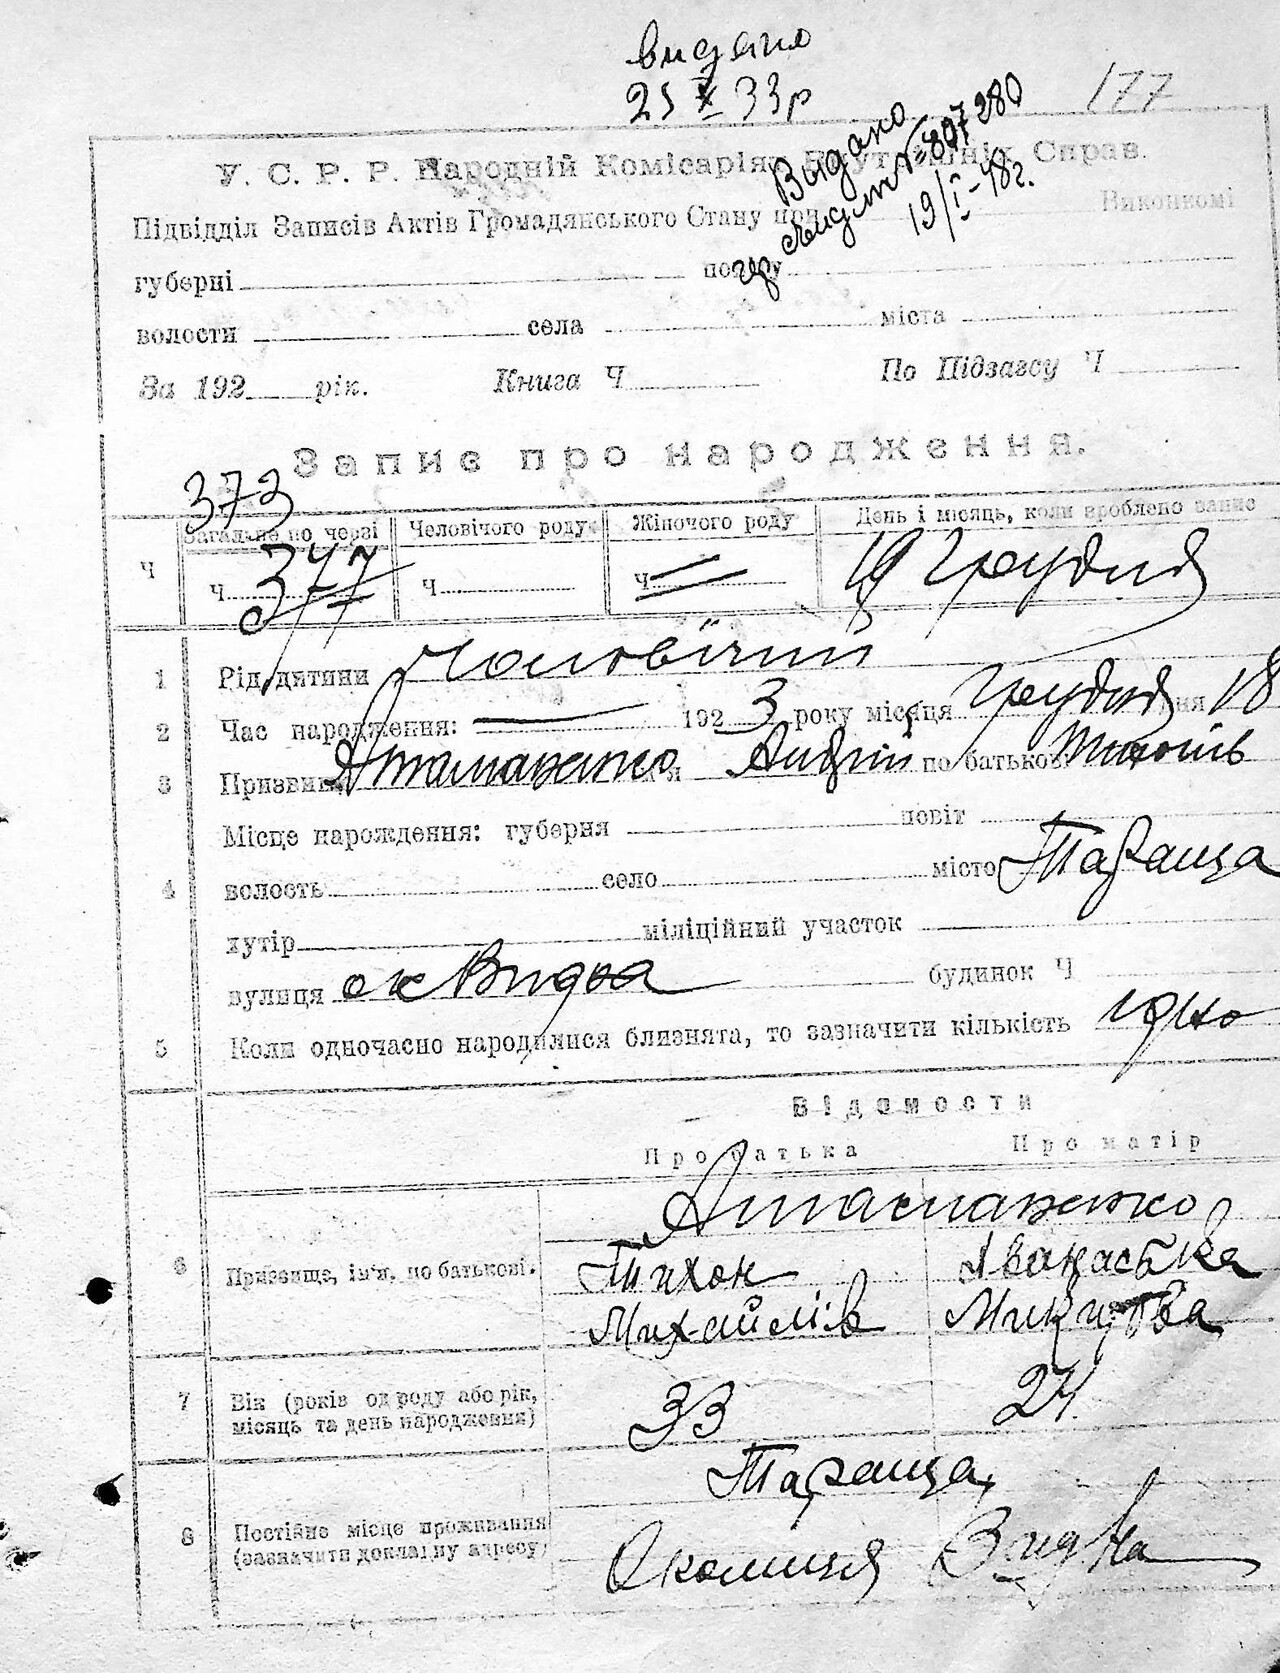 видано
25 X 33р
177
Видано
19/I-48г.
У. С. Р. Р. Народній Комісаріят Внутрішніх Справ.
Підвідділ Записів Актів Громадянського Стану при Виконкомі
губерні повіту
волости села міста
За 192 рік. Книга Ч По Підзагсу Ч
Запис про народження.
373
Загальне по черзі Человічого роду Жіночого роду День і місяць, коли зроблено запис
Ч Ч 377 Ч Ч 19 Грудня
1 Рід дитини Чоловічий
2 Час народження: 1923 року місяця Грудня дня 18
3 Призвище Атаманенко ім'я Андрій по батькові Тихонів
Місце народження: губерня повіт
4 волость село місто Тараща
хутір міліційний участок
вулиця ок Видна будинок Ч
5 Коли одночасно народилися близнята, то зазначити кількість одно
Відомости
Про батька Про матір
Атаманенко
6 Призвище, ім'я, по батькові. Тихон
Михайлів Микитова
7 Вік (років од роду або рік, 33 24.
місяць та день народження)
Тараща,
8 Постійне місце проживання
(зазначити докладну адресу) Околиця Видна